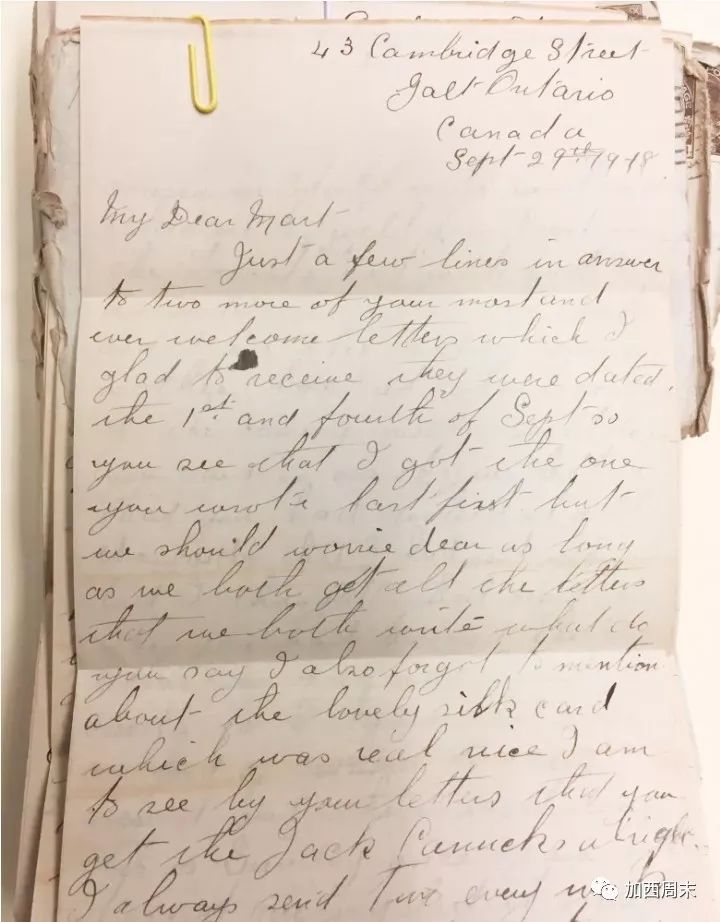 43 Cambridge Street
Galt Ontario
Canada
Sept 29th 1918
My Dear Mart
Just a few lines in answer
to two more of your most and
ever welcome letters which I
glad to receive they were dated
the 1st and fourth of Sept so
you see that I got the one
you wrote last first but
we should worrie dear as long
as we both get all the letters
that we both write what do
you say I also forgot to mention
about the lovely silk card
which was real nice I am
to see by your letters that you
get the Jack Canucks alright
I always send two every
加西周末